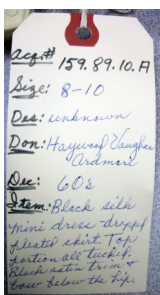 Acq.# 159.89.10.A
Size: 8-10
Des: unknown
Don: Haywood Vaughan
Ardmore
Dec: 60s
Item: Black silk
mini dress-dropped
pleated skirt. Top
portion all tucked.
Black satin trim &
bow below the hip.